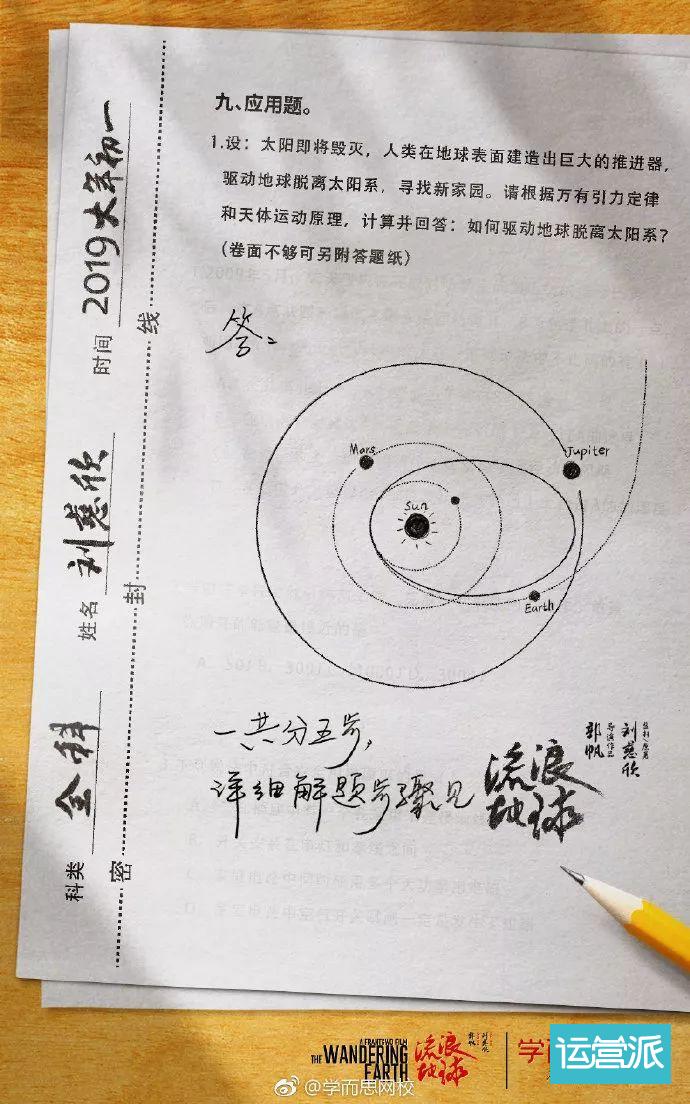 九、应用题。
1.设：太阳即将毁灭，人类在地球表面建造出巨大的推进器，
驱动地球脱离太阳系，寻找新家园。请根据万有引力定律
和天体运动原理，计算并回答：如何驱动地球脱离太阳系？
（卷面不够可另附答题纸）
答：
Mars
Jupiter
Sun
Earth
一共分五步，
详细解题步骤见
流浪
地球
郭帆
导演作品
刘慈欣
科类 全科
姓名 刘慈欣
时间 2019大年初一
密
封
线
A FRANT GWO FILM
THE WANDERING
EARTH
流浪
地球
郭帆
刘慈欣
学而
运营派
@学而思网校